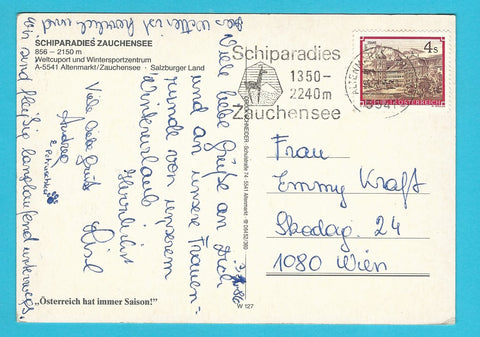 Das Wetter ist herrlich und
SCHIPARADIES ZAUCHENSEE
856 – 2150 m
Weltcuport und Wintersportzentrum
A-5541 Altenmarkt/Zauchensee · Salzburger Land
Viele liebe Grüße an Dich
und an unsere Frauen-
runde von unserem
Winterurlaub
Herzlichst
Lisl
Viele liebe Grüße
Andrea
wir sind fleißig langlaufend unterwegs.
„Österreich hat immer Saison!"
SCHNEIDER
5541 Altenmarkt
W 127
Schiparadies
1350–
2240m
Zauchensee
4 s
REPUBLIK ÖSTERREICH
Frau
Emmy Kraft
Skodag. 24
1080 Wien